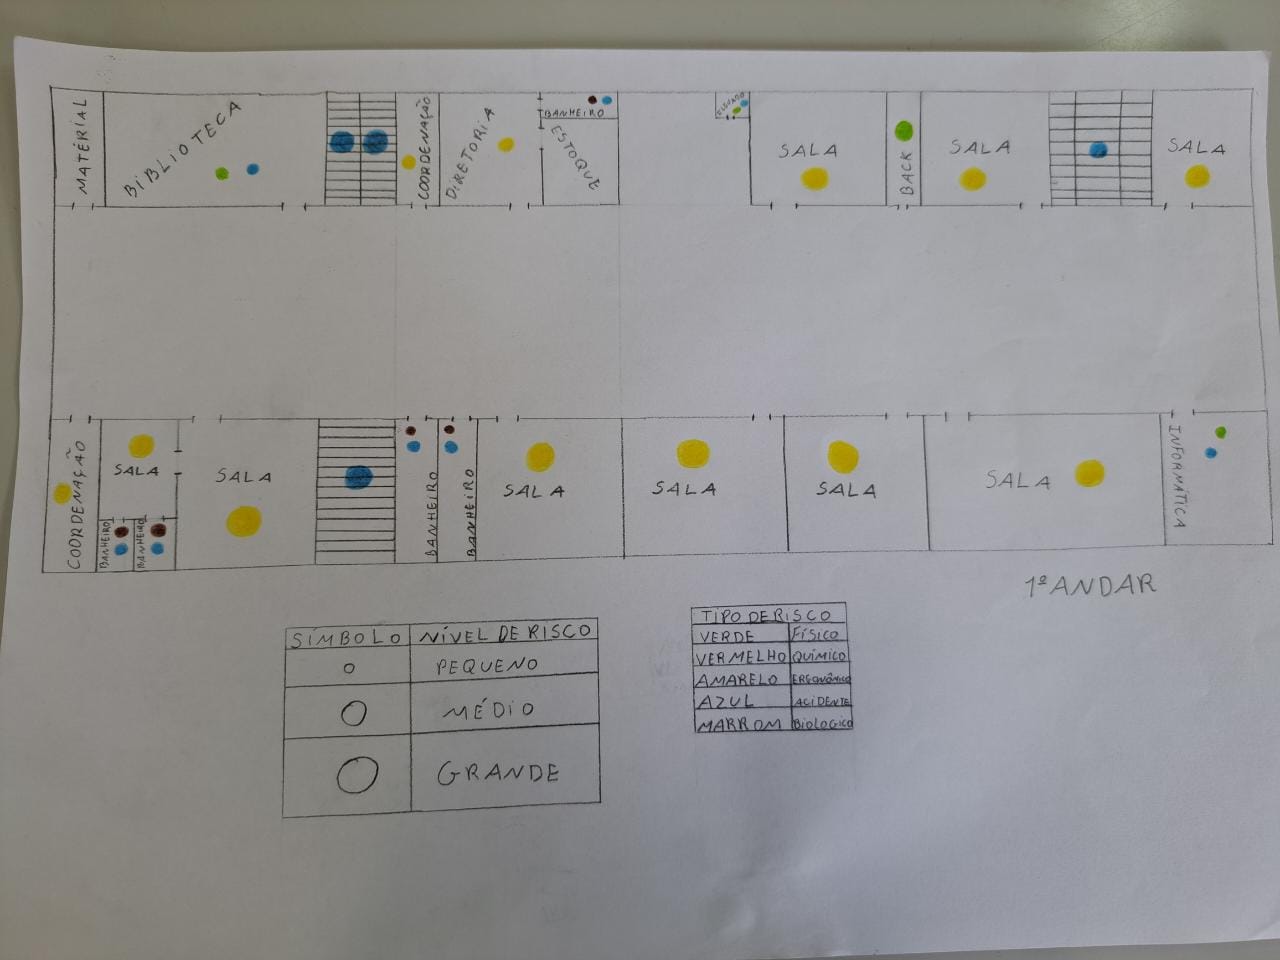 MATÉRIAL
BIBLIOTECA
COORDENAÇÃO
DIRETORIA
BANHEIRO
ESTOQUE
SALA
BACK
SALA
SALA
COORDENAÇÃO
SALA
BANHEIRO
BANHEIRO
SALA
BANHEIRO
BANHEIRO
SALA
SALA
SALA
SALA
INFORMÁTICA
1º ANDAR
SÍMBOLO NÍVEL DE RISCO
PEQUENO
MÉDIO
GRANDE
TIPO DE RISCO
VERDE FÍSICO
VERMELHO QUÍMICO
AMARELO ERGONÔMICO
AZUL ACIDENTE
MARROM BIOLOGICO